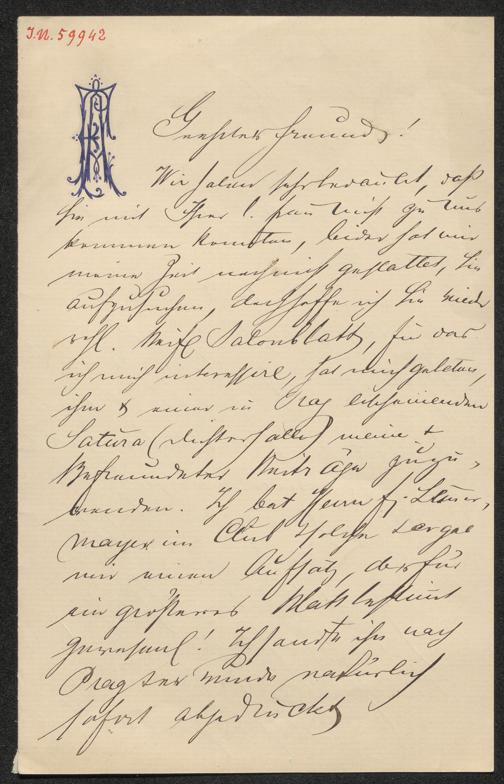 I.N. 59942
Geehrter Freund!
Wir haben sehr bedauert, daß
Sie mit Ihrer l. Frau nicht zu uns
kommen konnten, leider hat mir
meine Zeit noch nicht gestattet, Sie
aufzusuchen, doch hoffe ich Sie wieder
Salonblatt, für das
ich mich interessire, hat mich gebeten,
ihm & einer in Prag erscheinenden
Satura (Dichterhalle) meine &
Befreundeter Beiträge zuzu-
wenden. Ich bat Herrn
mayer im Club
mir einen Aufsatz, der für
ein größeres Blatt bestimmt
gewesen! Ich sandte ihn nach
Prag & er wurde natürlich
sofort abgedruckt